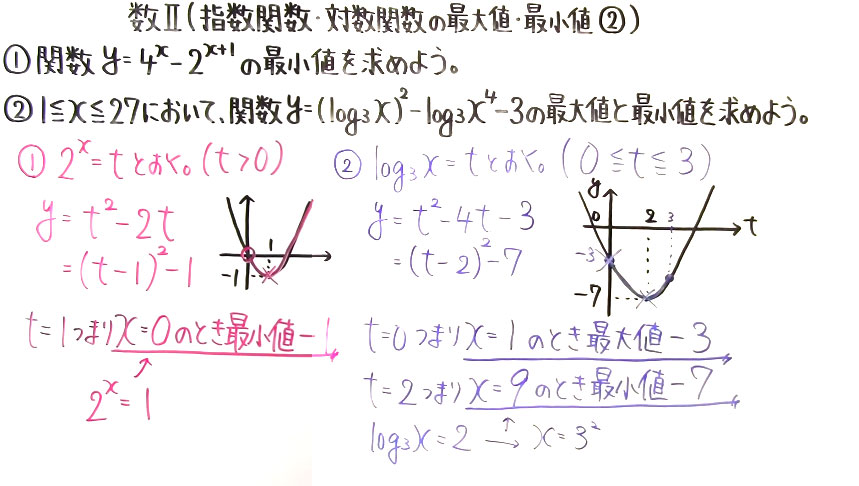 数Ⅱ(指数関数・対数関数の最大値・最小値②)
①関数 y=4^x-2^{x+1} の最小値を求めよう。
②1≦x≦27において、関数y=(log₃x)²-log₃x⁴-3の最大値と最小値を求めよう。
① 2^x=tとおく。(t>0)
y=t²-2t
=(t-1)²-1
1
-1
t=1つまりx=0のとき最小値-1
↑
2^x=1
② log₃x=tとおく。(0≦t≦3)
y=t²-4t-3
=(t-2)²-7
y
0 2 3 t
-3
-7
t=0つまりx=1のとき最大値-3
t=2つまりx=9のとき最小値-7
log₃x=2 → x=3²
↑